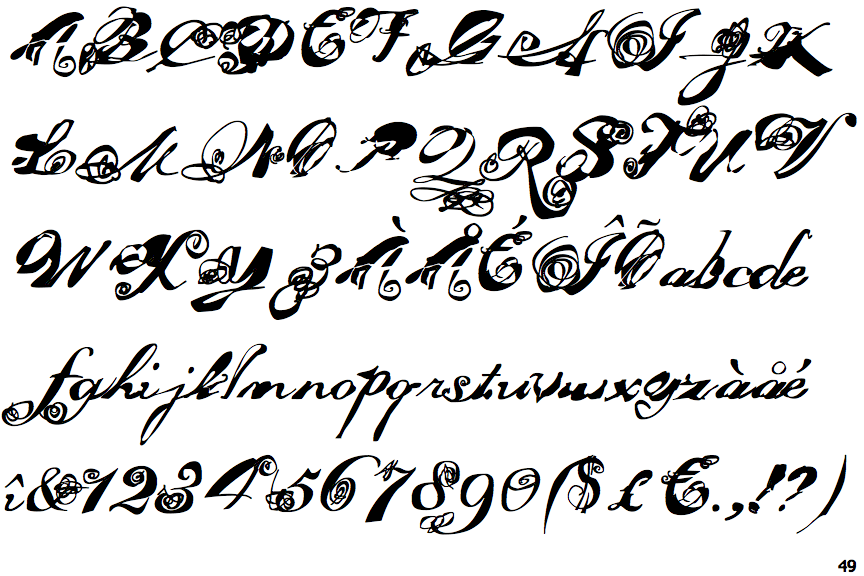 ABCDEFGHIJK
LMNOPQRSTUV
WXYZÀÅÉÎÕabcde
fghijklmnopqrstuvwxyzàåé
î&1234567890($£€.,!?)
49